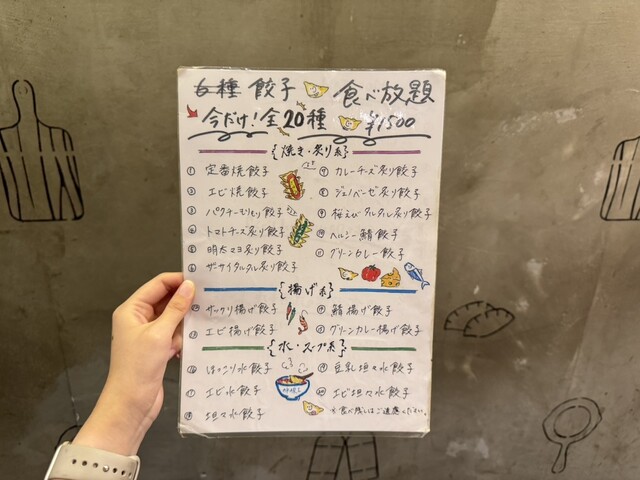 6種 餃子 食べ放題
今だけ！全20種 ¥1500
{焼き・炙り系}
① 定番焼餃子
② エビ焼餃子
③ パクチーもりもり餃子
④ トマトチーズ炙り餃子
⑤ 明太マヨ炙り餃子
⑥ ザーサイタルタル炙り餃子
⑦ カレーチーズ炙り餃子
⑧ ジェノベーゼ炙り餃子
⑨ 桜えびタルタル炙り餃子
⑩ ヘルシー鯖餃子
⑪ グリーンカレー餃子
{揚げ系}
⑫ サックリ揚げ餃子
⑬ エビ揚げ餃子
⑭ 鯖揚げ餃子
⑮ グリーンカレー揚げ餃子
{水・スープ系}
⑯ ほっこり水餃子
⑰ エビ水餃子
⑱ 坦々水餃子
⑲ 豆乳坦々水餃子
⑳ エビ坦々水餃子
※食べ残しはご遠慮ください。